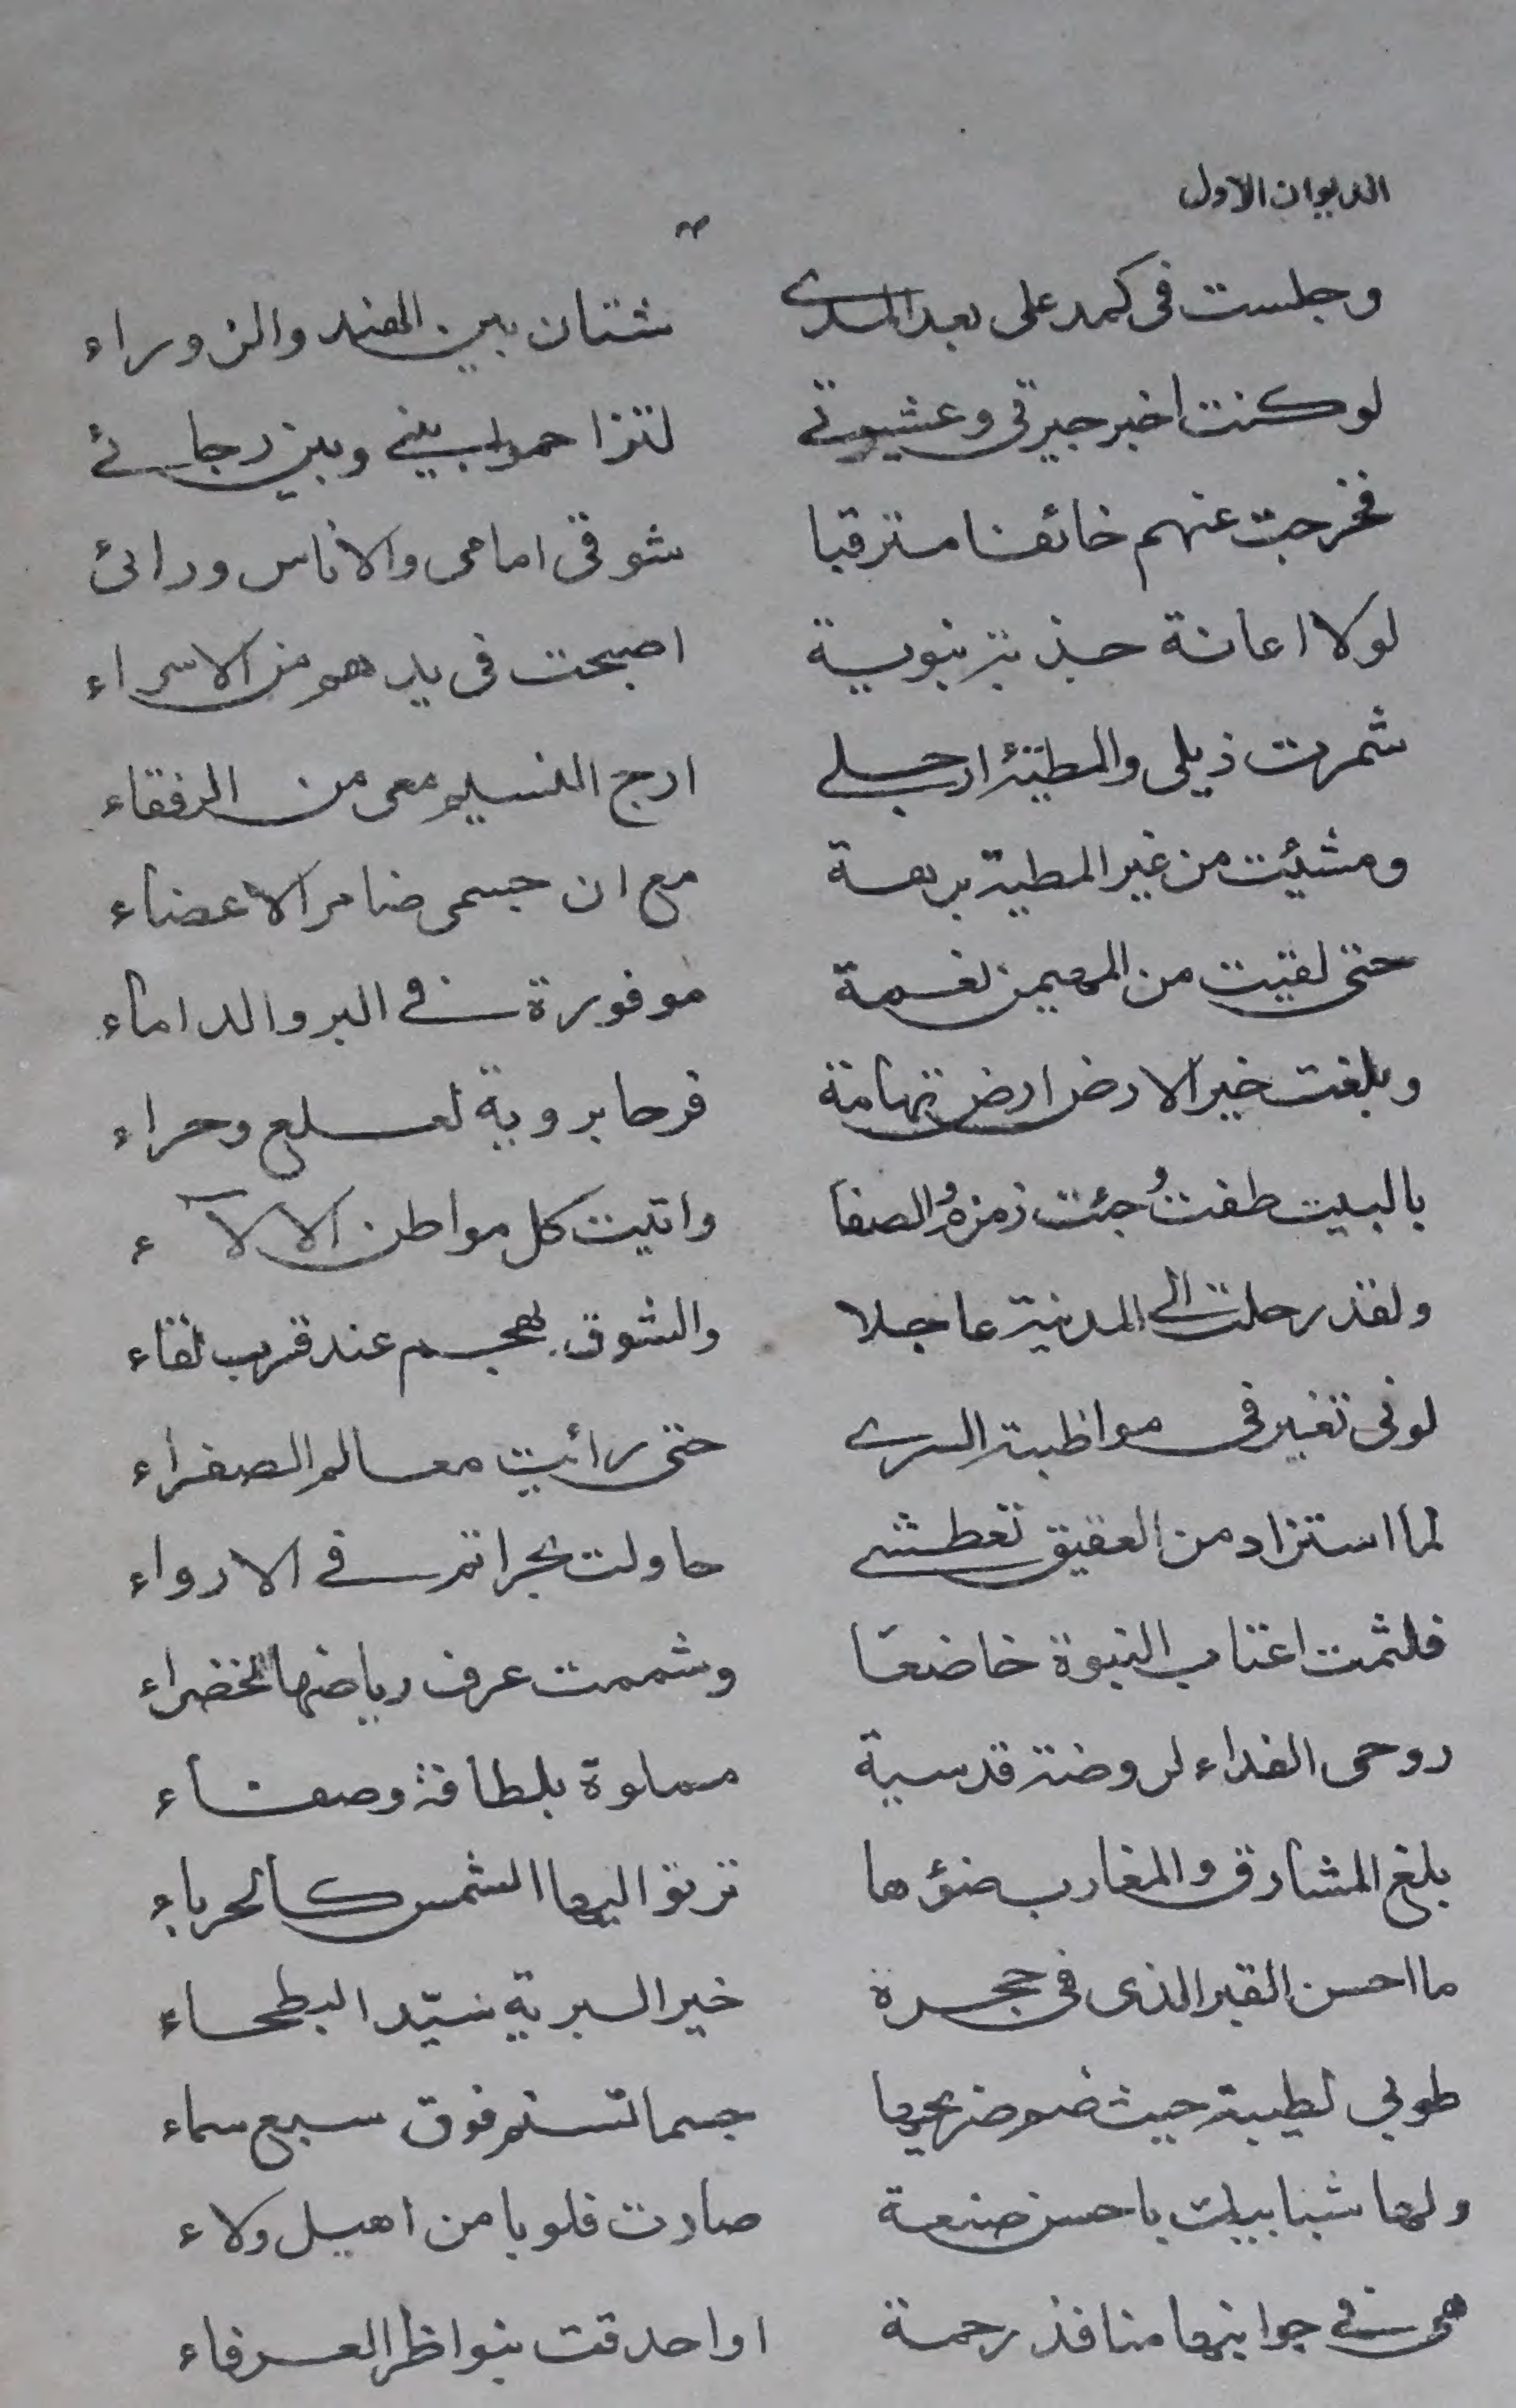 الديوان الاول
٣
وجلست فى كمد على بعد المدى شتان بين الهند والزوراء
لو كنت اخبر جيرتى وعشيرتى لتزاحموا بينى وبين رجائى
فخرجت عنهم خائفا مترقبا شوقى امامى والاناس ورائى
لولا اعانة جذبة نبوية اصبحت فى يدهم من الاسراء
شمرت ذيلى والمطية ارجلى ارج النسيم معى من الرفقاء
ومشيت من غير المطية برهة مع ان جسمى ضامر الاعضاء
حتى لقيت من المهيمن نعمة موفورة فى البر والداماء
وبلغت خير الارض ارض تهامة فرحا بروية لعلع وحراء
بالبيت طفتُ جئت زمزمُ والصفا واتيت كل مواطن الالآء
ولقد رحلت الى المدينة عاجلا والشوق يهجم عند قرب لقاء
لونى تغير فى مواظبة السرى حتى رائيت معالم الصفراء
لما استزاد من العقيق تعطشى حاولت بحرا تم فى الارواء
فلثمت اعتاب النبوة خاضعًا وشممت عرف رياضها الخضراء
روحى الفداء لروضة قدسية مملوة بلطافة وصفاء
بلغ المشارق والمغارب ضوؤها ترنو اليها الشمس كالحرباء
ما احسن القبر الذى فى حجرة خير البرية سيّد البطحاء
طوبى لطيبة حيث ضم ضريحها جسما تسنم فوق سبع سماء
ولها شبابيك باحسن صنعة صادت قلوبا من اهيل ولاء
هى فى جوانبها منافذ رحمة اواحدقت بنواظر العرفاء